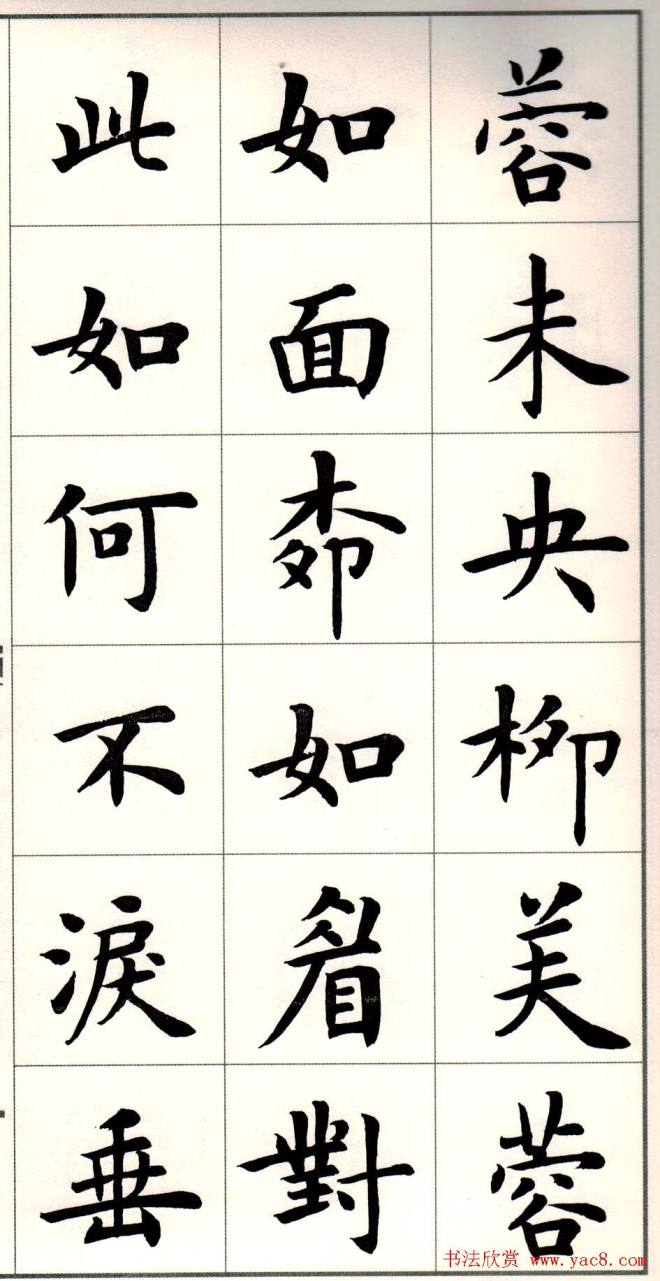 蓉未央柳芙蓉
如面柳如眉對
此如何不淚垂
书法欣赏 www.yac8.com